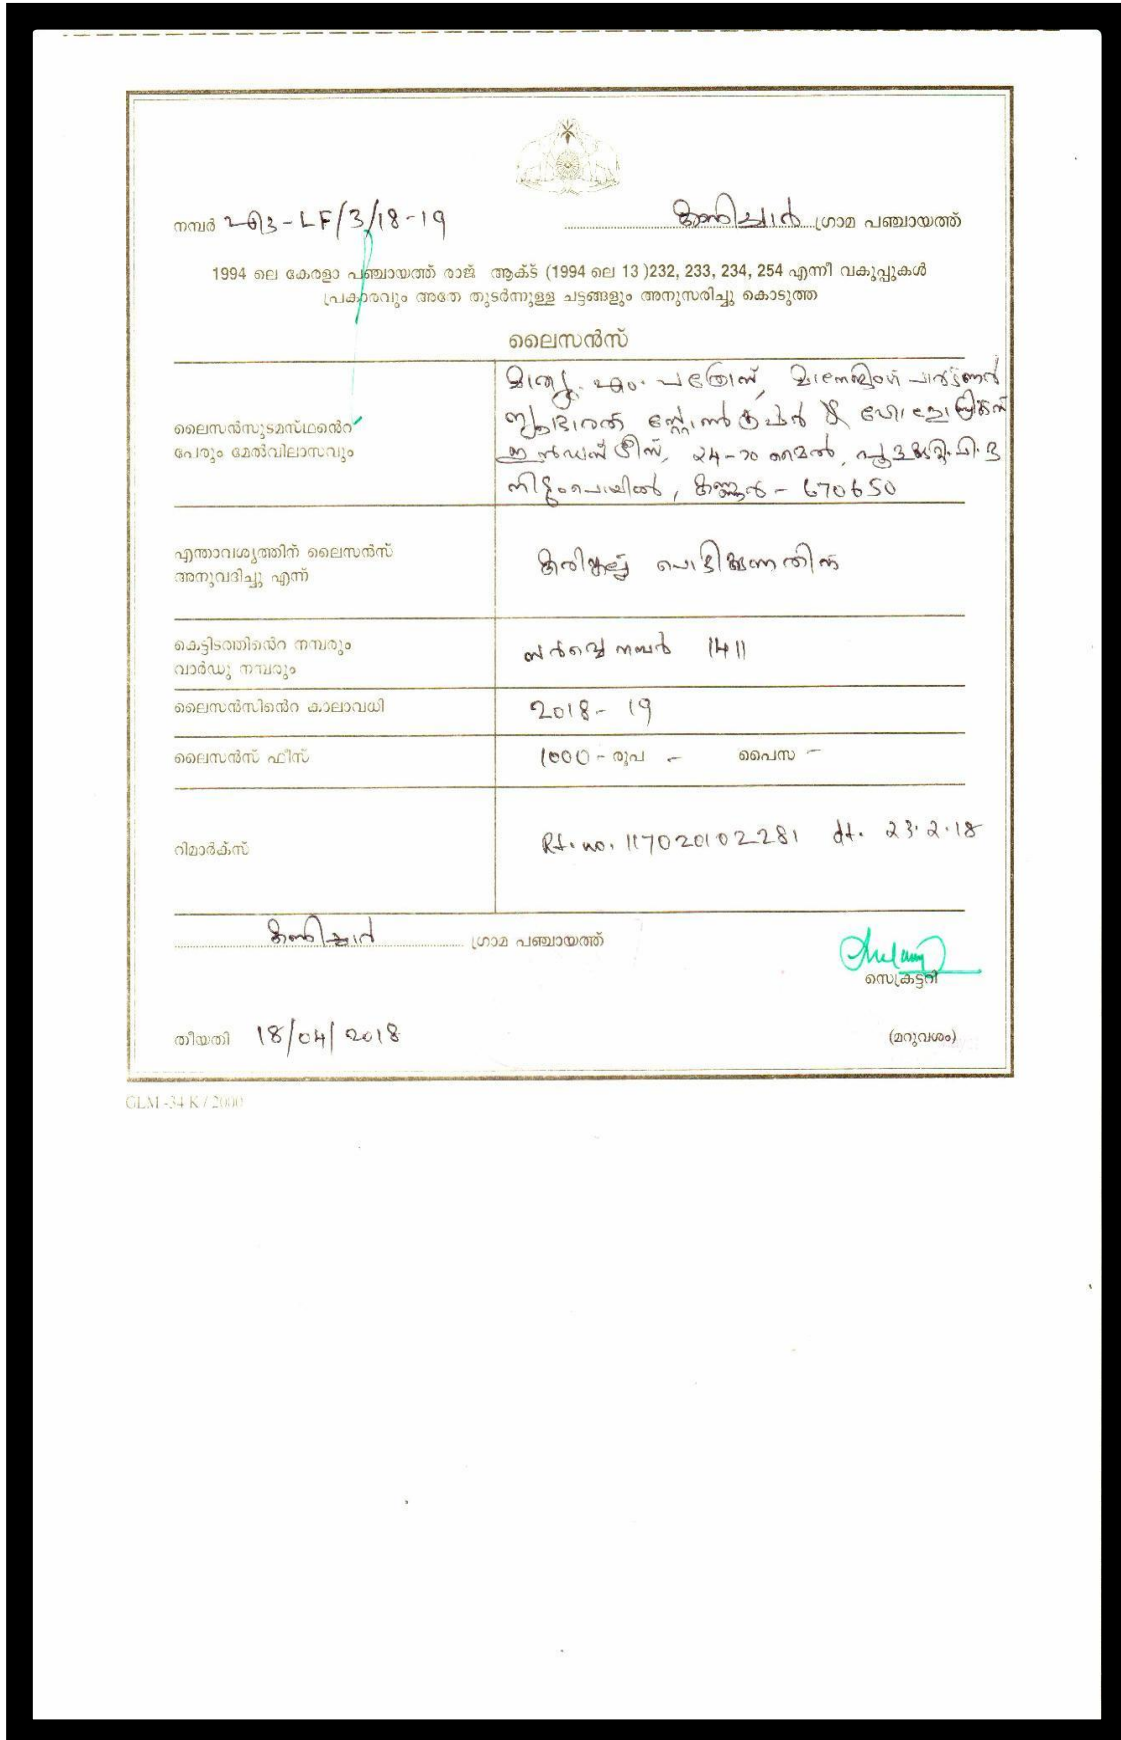 നമ്പർ -LF/3/18-19
കണിച്ചാർ ഗ്രാമ പഞ്ചായത്ത്
1994 ലെ കേരളാ പഞ്ചായത്ത് രാജ് ആക്ട് (1994 ലെ 13 )232, 233, 234, 254 എന്നീ വകുപ്പുകൾ
പ്രകാരവും അതേ തുടർന്നുള്ള ചട്ടങ്ങളും അനുസരിച്ചു കൊടുത്ത
ലൈസൻസ്
ലൈസൻസുടമസ്ഥൻെറ
പേരും മേൽവിലാസവും
മാത്യു. എം. പത്രോസ്, മാനേജിംഗ് പാർട്ണർ
ന്യൂഭാരത് സ്റ്റോൺ ക്രഷർ & ഹോളോബ്രിക്സ്
ഇൻഡസ്ട്രീസ്, 24-ാം മൈൽ,
നിടുംപൊയിൽ, കണ്ണൂർ - 670650
എന്താവശ്യത്തിന് ലൈസൻസ്
അനുവദിച്ചു എന്ന്
കരിങ്കല്ല് പൊട്ടിക്കുന്നതിന്
കെട്ടിടത്തിൻെറ നമ്പരും
വാർഡു നമ്പരും
സർവ്വെ നമ്പർ 1411
ലൈസൻസിൻെറ കാലാവധി
2018 - 19
ലൈസൻസ് ഫീസ്
1000 - രൂപ - പൈസ -
റിമാർക്സ്
Rt. no. 117020102281 dt. 23.2.18
കണിച്ചാർ ഗ്രാമ പഞ്ചായത്ത്
സെക്രട്ടറി
തീയതി 18/04/2018
(മറുവശം)
GLM -34 K / 2000